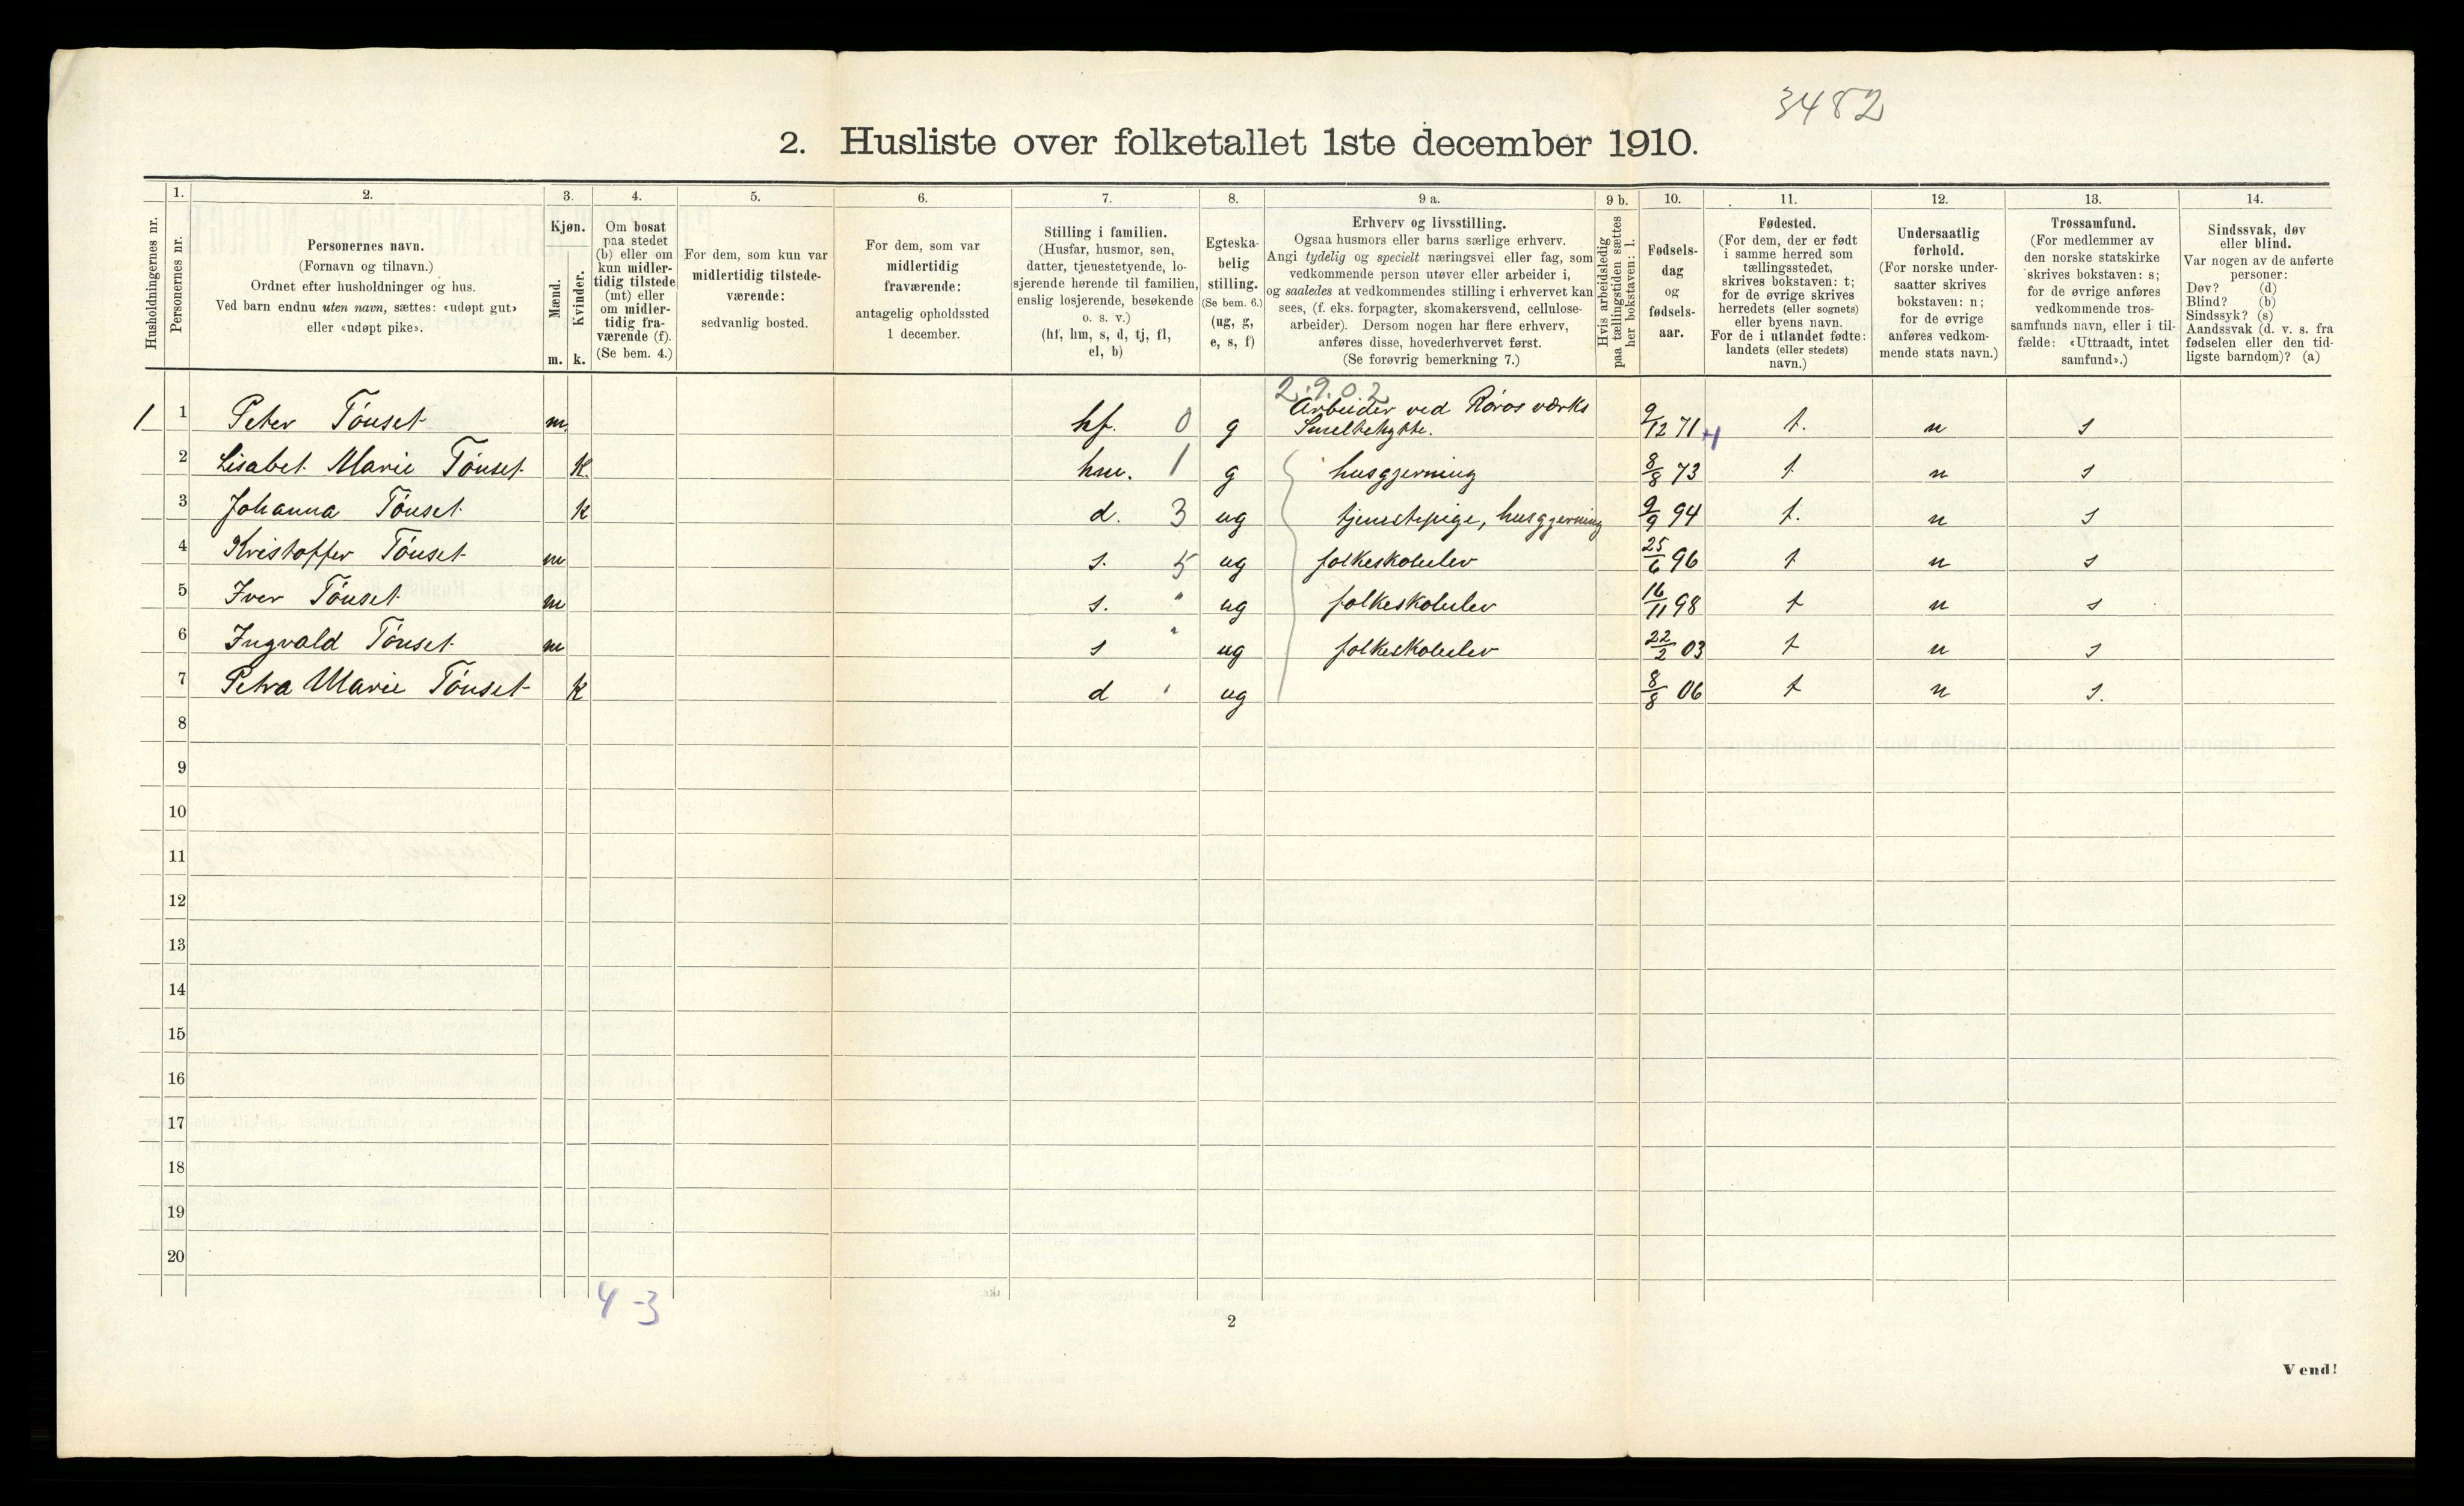 3482
2. Husliste over folketallet 1ste december 1910.
Husholdningernes nr.
1.
Personernes nr.
2.
Personernes navn.
(Fornavn og tilnavn.)
Ordnet efter husholdninger og hus.
Ved barn endnu uten navn, sættes: «udøpt gut»
eller «udøpt pike».
3.
Kjøn.
Mænd.
Kvinder.
m. k.
4.
Om bosat
paa stedet
(b) eller om
kun midler-
tidig tilstede
(mt) eller
om midler-
tidig fra-
værende (f).
(Se bem. 4.)
5.
For dem, som kun var
midlertidig tilstede-
værende:
sedvanlig bosted.
6.
For dem, som var
midlertidig
fraværende:
antagelig opholdssted
1 december.
7.
Stilling i familien.
(Husfar, husmor, søn,
datter, tjenestetyende, lo-
sjerende hørende til familien,
enslig losjerende, besøkende
o. s. v.)
(hf, hm, s, d, tj, fl,
el, b)
8.
Egteska-
belig
stilling.
(Se bem. 6.)
(ug, g,
e, s, f)
9 a.
Erhverv og livsstilling.
Ogsaa husmors eller barns særlige erhverv.
Angi tydelig og specielt næringsvei eller fag, som
vedkommende person utøver eller arbeider i,
og saaledes at vedkommendes stilling i erhvervet kan
sees, (f. eks. forpagter, skomakersvend, cellulose-
arbeider). Dersom nogen har flere erhverv,
anføres disse, hovederhvervet først.
(Se forøvrig bemerkning 7.)
9 b.
Hvis arbeidsledig
paa tællingstiden sættes
her bokstaven: l.
10.
Fødsels-
dag
og
fødsels-
aar.
11.
Fødested.
(For dem, der er født
i samme herred som
tællingsstedet,
skrives bokstaven: t;
for de øvrige skrives
herredets (eller sognets)
eller byens navn.
For de i utlandet fødte:
landets (eller stedets)
navn.)
12.
Undersaatlig
forhold.
(For norske under-
saatter skrives
bokstaven: n;
for de øvrige
anføres vedkom-
mende stats navn.)
13.
Trossamfund.
(For medlemmer av
den norske statskirke
skrives bokstaven: s;
for de øvrige anføres
vedkommende tros-
samfunds navn, eller i til-
fælde: «Uttraadt, intet
samfund».)
14.
Sindssvak, døv
eller blind.
Var nogen av de anførte
personer:
Døv? (d)
Blind? (b)
Sindssyk? (s)
Aandssvak (d. v. s. fra
fødselen eller den tid-
ligste barndom)? (a)
2.9.02
1 1 Peter Tønset m. hf. 0 g Arbeider ved Røros værks Smeltehytte. 9/12 71 t. n s
2 Lisabet Marie Tønset k. hm. 1 g husgjerning 8/8 73 t n s
3 Johanna Tønset k d. 3 ug tjenestepige, husgjerning 9/9 94 t. n s
4 Kristoffer Tønset m s. 5 ug folkeskoleelev 25/6 96 t n s
5 Iver Tønset m s. " ug folkeskoleelev 16/11 98 t n s
6 Ingvald Tønset m s " ug folkeskoleelev 22/2 03 t n s
7 Petra Marie Tønset k d " ug 8/8 06 t n s.
8
9
10
11
12
13
14
15
16
17
18
19
20
4-3
2
Vend!